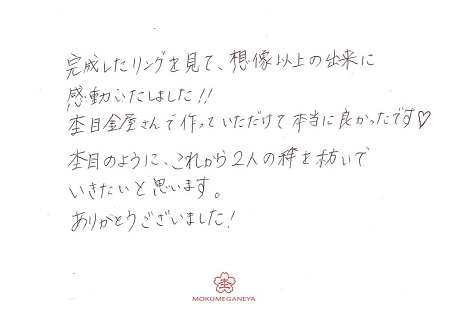 完成したリングを見て、想像以上の出来に
感動いたしました!!
杢目金屋さんで作っていただけて本当に良かったです♡
杢目のように、これから2人の絆を紡いで
いきたいと思います。
ありがとうございました!
杢
MOKUMEGANEYA